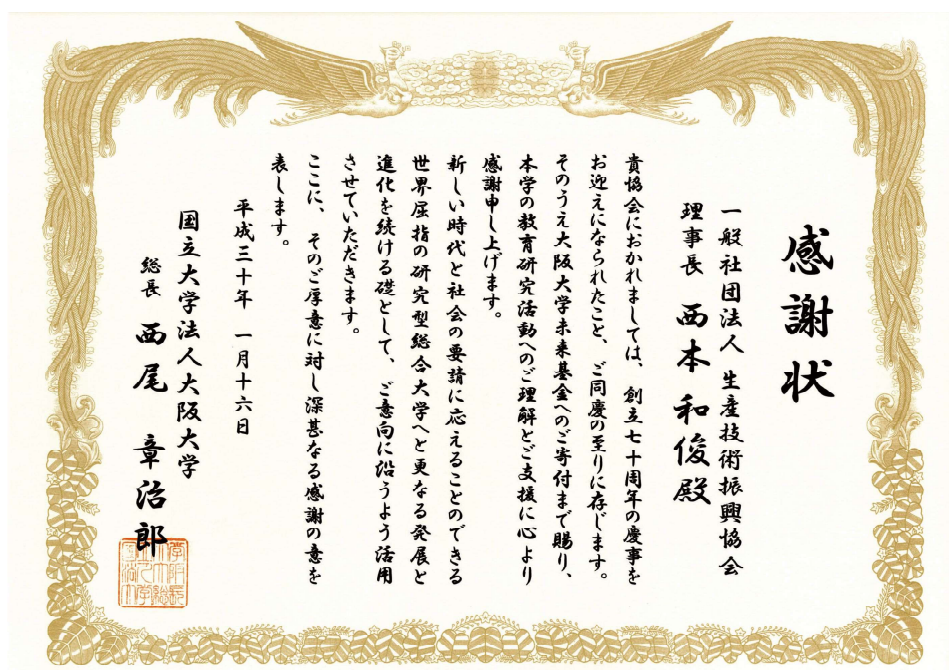 感謝状
一般社団法人 生産技術振興協会
理事長 西本 和俊殿
貴協会におかれましては、創立七十周年の慶事を
お迎えになられたこと、ご同慶の至りに存じます。
そのうえ大阪大学未来基金へのご寄付まで賜り、
本学の教育研究活動へのご理解とご支援に心より
感謝申し上げます。
新しい時代と社会の要請に応えることのできる
世界屈指の研究型総合大学へと更なる発展と
進化を続ける礎として、ご意向に沿うよう活用
させていただきます。
ここに、そのご厚意に対し深甚なる感謝の意を
表します。
平成三十年 一月十六日
国立大学法人大阪大学
総長 西尾 章治郎